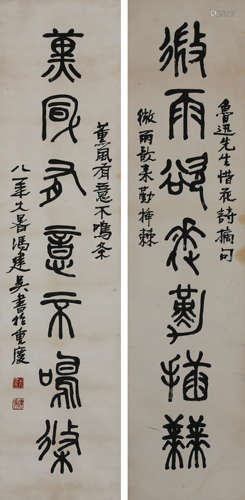 魯迅先生惜花詩摘句
微雨欲來勤插棘
微雨欲来勤插棘
薰風有意不鳴条
薰風有意不鳴條
八一年大暑馮建吴書於重慶